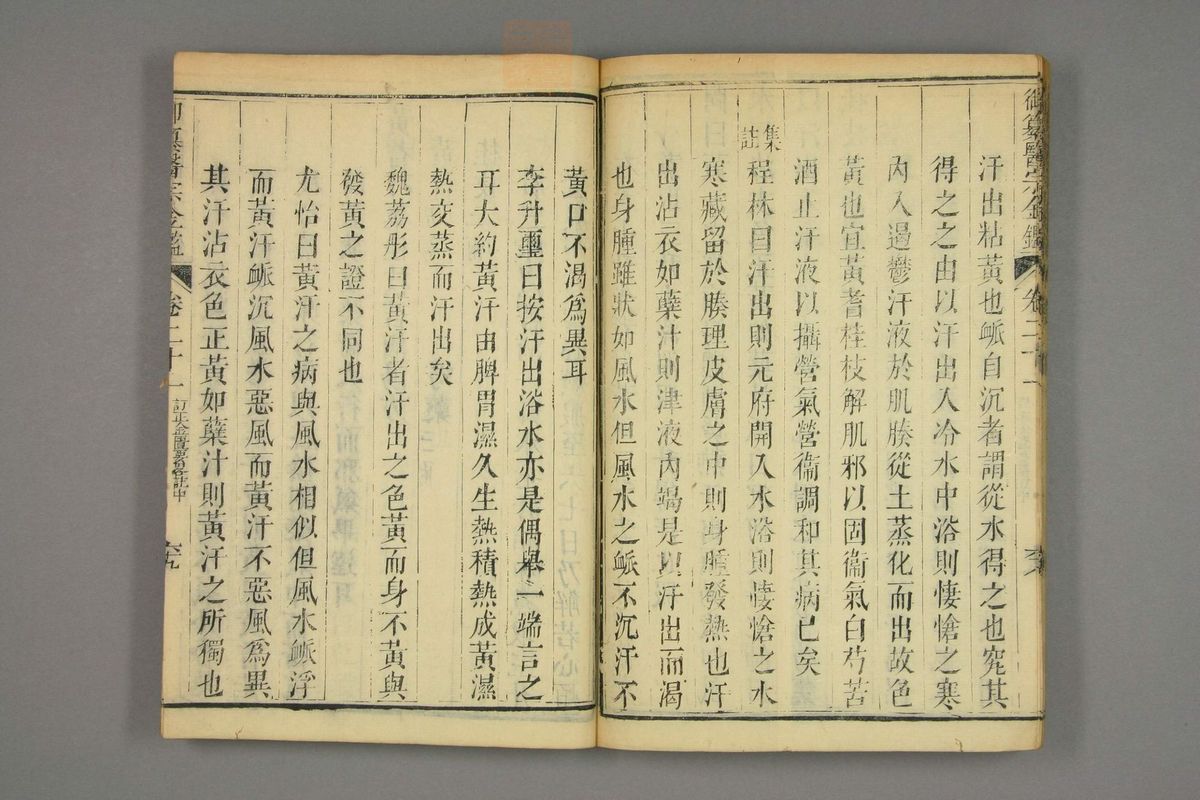 御纂醫宗金鑑 卷二十一
汗出粘黃也脈自沉者謂從水得之也究其
得之之由以汗出入冷水中浴則悽愴之寒
內入遏鬱汗液於肌腠從土蒸化而出故色
黃也宜黃耆桂枝解肌邪以固衞氣白芍苦
酒止汗液以攝營氣營衞調和其病已矣
集註
程林曰汗出則元府開入水浴則悽愴之水
寒藏留於腠理皮膚之中則身腫發熱也汗
出沾衣如蘗汁則津液內竭是以汗出而渴
也身腫雖狀如風水但風水之脈不沉汗不
黃口不渴爲異耳
李升璽曰按汗出浴水亦是偶舉一端言之
耳大約黃汗由脾胃濕久生熱積熱成黃濕
熱交蒸而汗出矣
魏荔彤曰黃汗者汗出之色黃而身不黃與
發黃之證不同也
尤怡曰黃汗之病與風水相似但風水脈浮
而黃汗脈沉風水惡風而黃汗不惡風爲異
其汗沾衣色正黃如蘗汁則黃汗之所獨也
御纂醫宗金鑑 卷二十一 訂正金匱要畧註中 六九